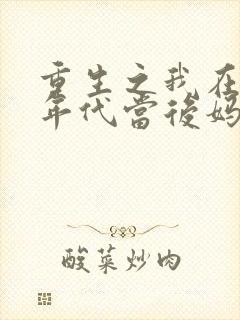 重生之我在
年代當後媽
酸菜炒肉